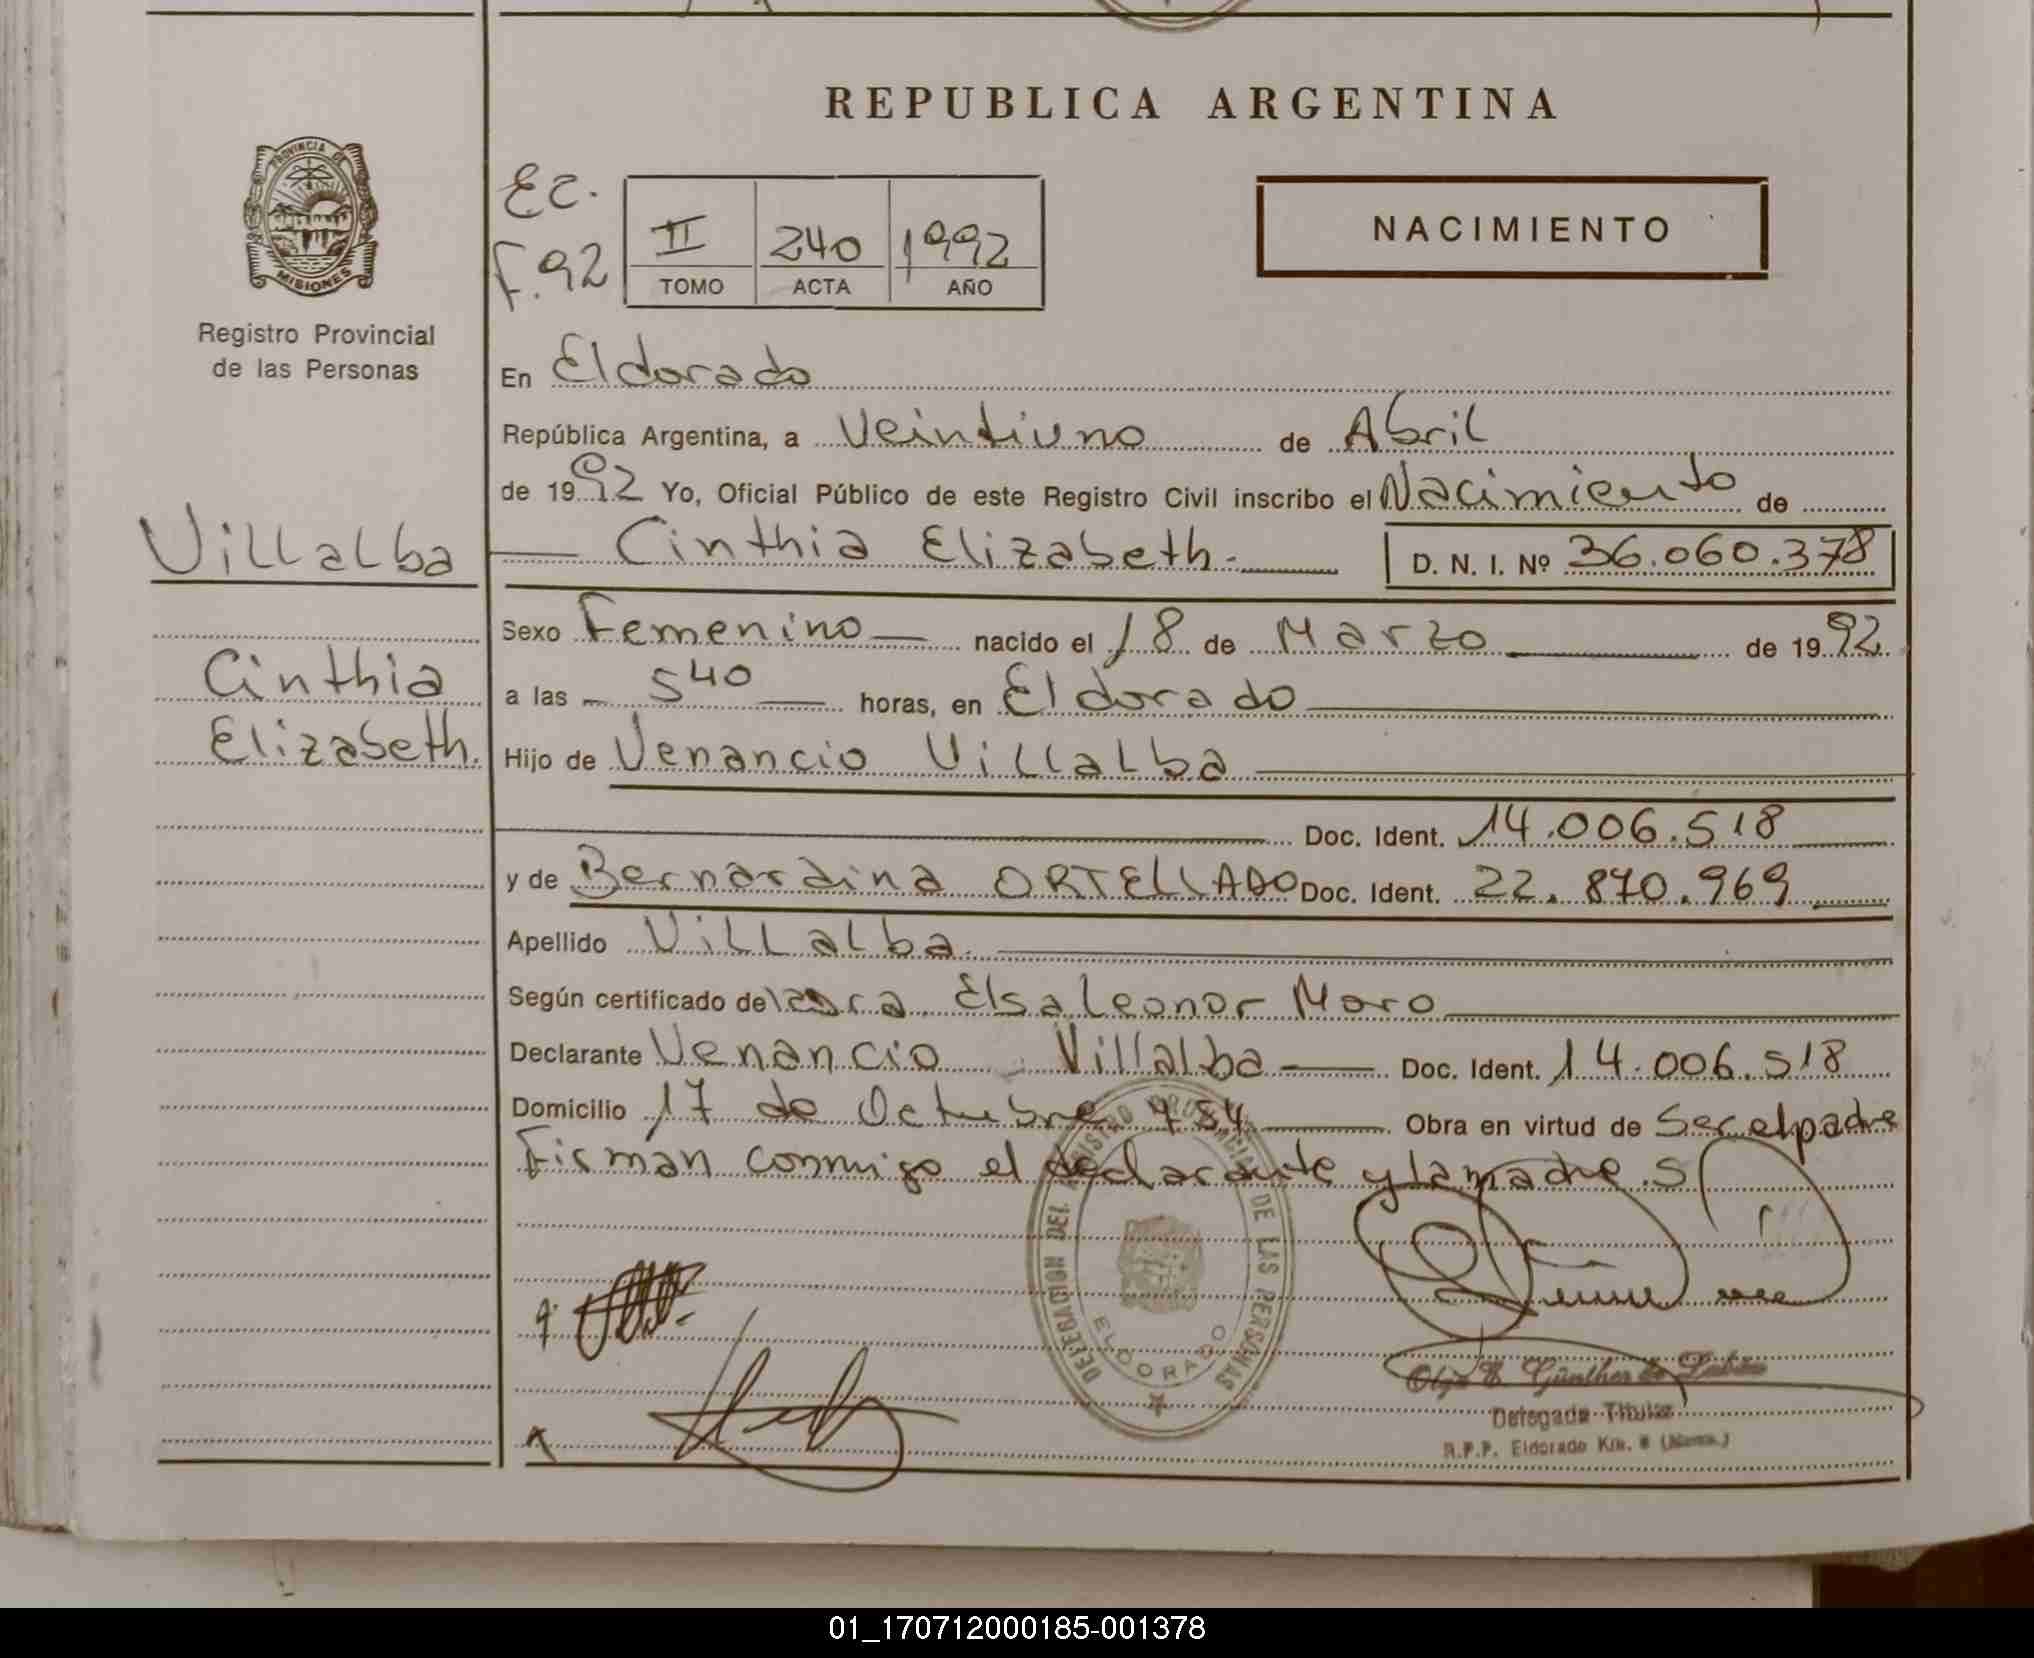 REPUBLICA ARGENTINA
PROVINCIA DE MISIONES
Registro Provincial
de las Personas
Ec.
F.92
II 240 1992
TOMO ACTA AÑO
NACIMIENTO
En Eldorado
República Argentina, a Veintiuno de Abril
de 1992 Yo, Oficial Público de este Registro Civil inscribo el Nacimiento de
Villalba
Cinthia Elizabeth.
D. N. I. Nº 36.060.378
Sexo Femenino nacido el 18 de Marzo de 1992
Cinthia
Elizabeth.
a las 5 40 horas, en Eldorado
Hijo de Venancio Villalba
Doc. Ident. 14.006.518
y de Bernardina ORTELLADO Doc. Ident. 22.870.969
Apellido Villalba.
Según certificado de la Dra. Elsa Leonor Moro
Declarante Venancio Villalba Doc. Ident. 14.006.518
Domicilio 17 de Octubre 454 Obra en virtud de Ser el padre
Firman conmigo el declarante y la madre.
DELEGACION DEL REGISTRO PROVINCIAL DE LAS PERSONAS
ELDORADO
Olga E. Günther de
Delegada Titular
R.P.P. Eldorado Km. 8 (Mnes.)
01_170712000185-001378